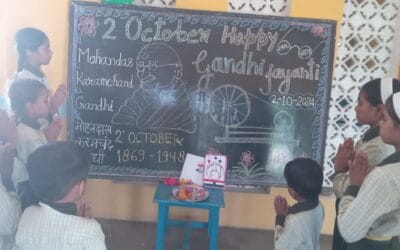 2 October Happy
Gandhi jayanti
2-10-2024
Mohandas
Karamchand
Gandhi
मोहनदास
करमचंद
गांधी
2' OCTOBER
1869-1948